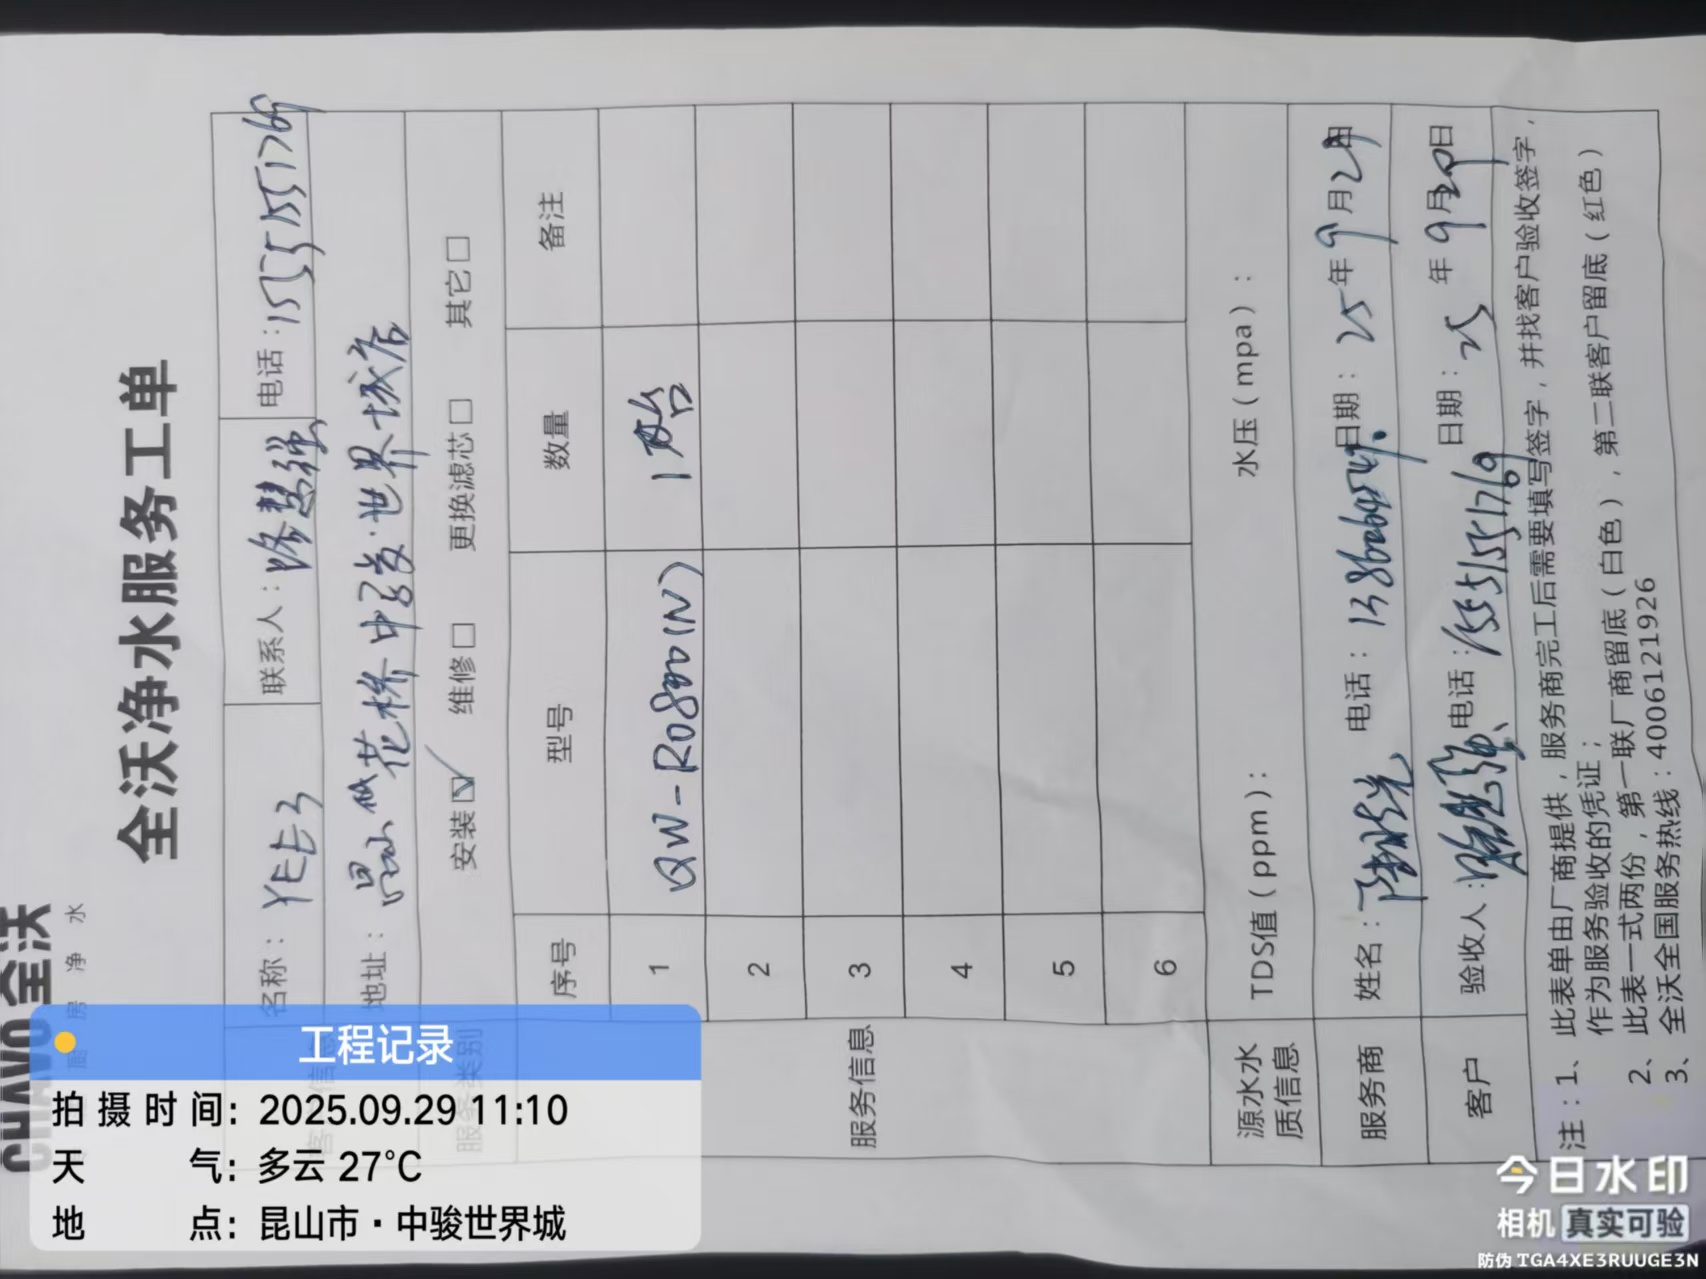 CHAWO 全沃
厨房净水
全沃净水服务工单
名称：YEE3 联系人：徐慧强 电话：15551551769
地址：昆山 花桥中骏·世界城店
安装☑ 维修□ 更换滤芯□ 其它□
服务类别
序号 型号 数量 备注
服务信息
1 QW-RO800(N) 1台
2
3
4
5
6
源水水质信息 TDS值（ppm）： 水压（mpa）：
服务商 姓名： 电话： 日期：25年9月29日
客户 验收人： 电话：15551551769 日期：25年9月29日
注：1、此表单由厂商提供，服务商完工后需要填写签字，并找客户验收签字，
作为服务验收的凭证；
2、此表一式两份，第一联厂商留底（白色），第二联客户留底（红色）
3、全沃全国服务热线：4006121926
工程记录
拍摄时间：2025.09.29 11:10
天气：多云 27°C
地点：昆山市·中骏世界城
今日水印
相机 真实可验
防伪 TGA4XE3RUUGE3N